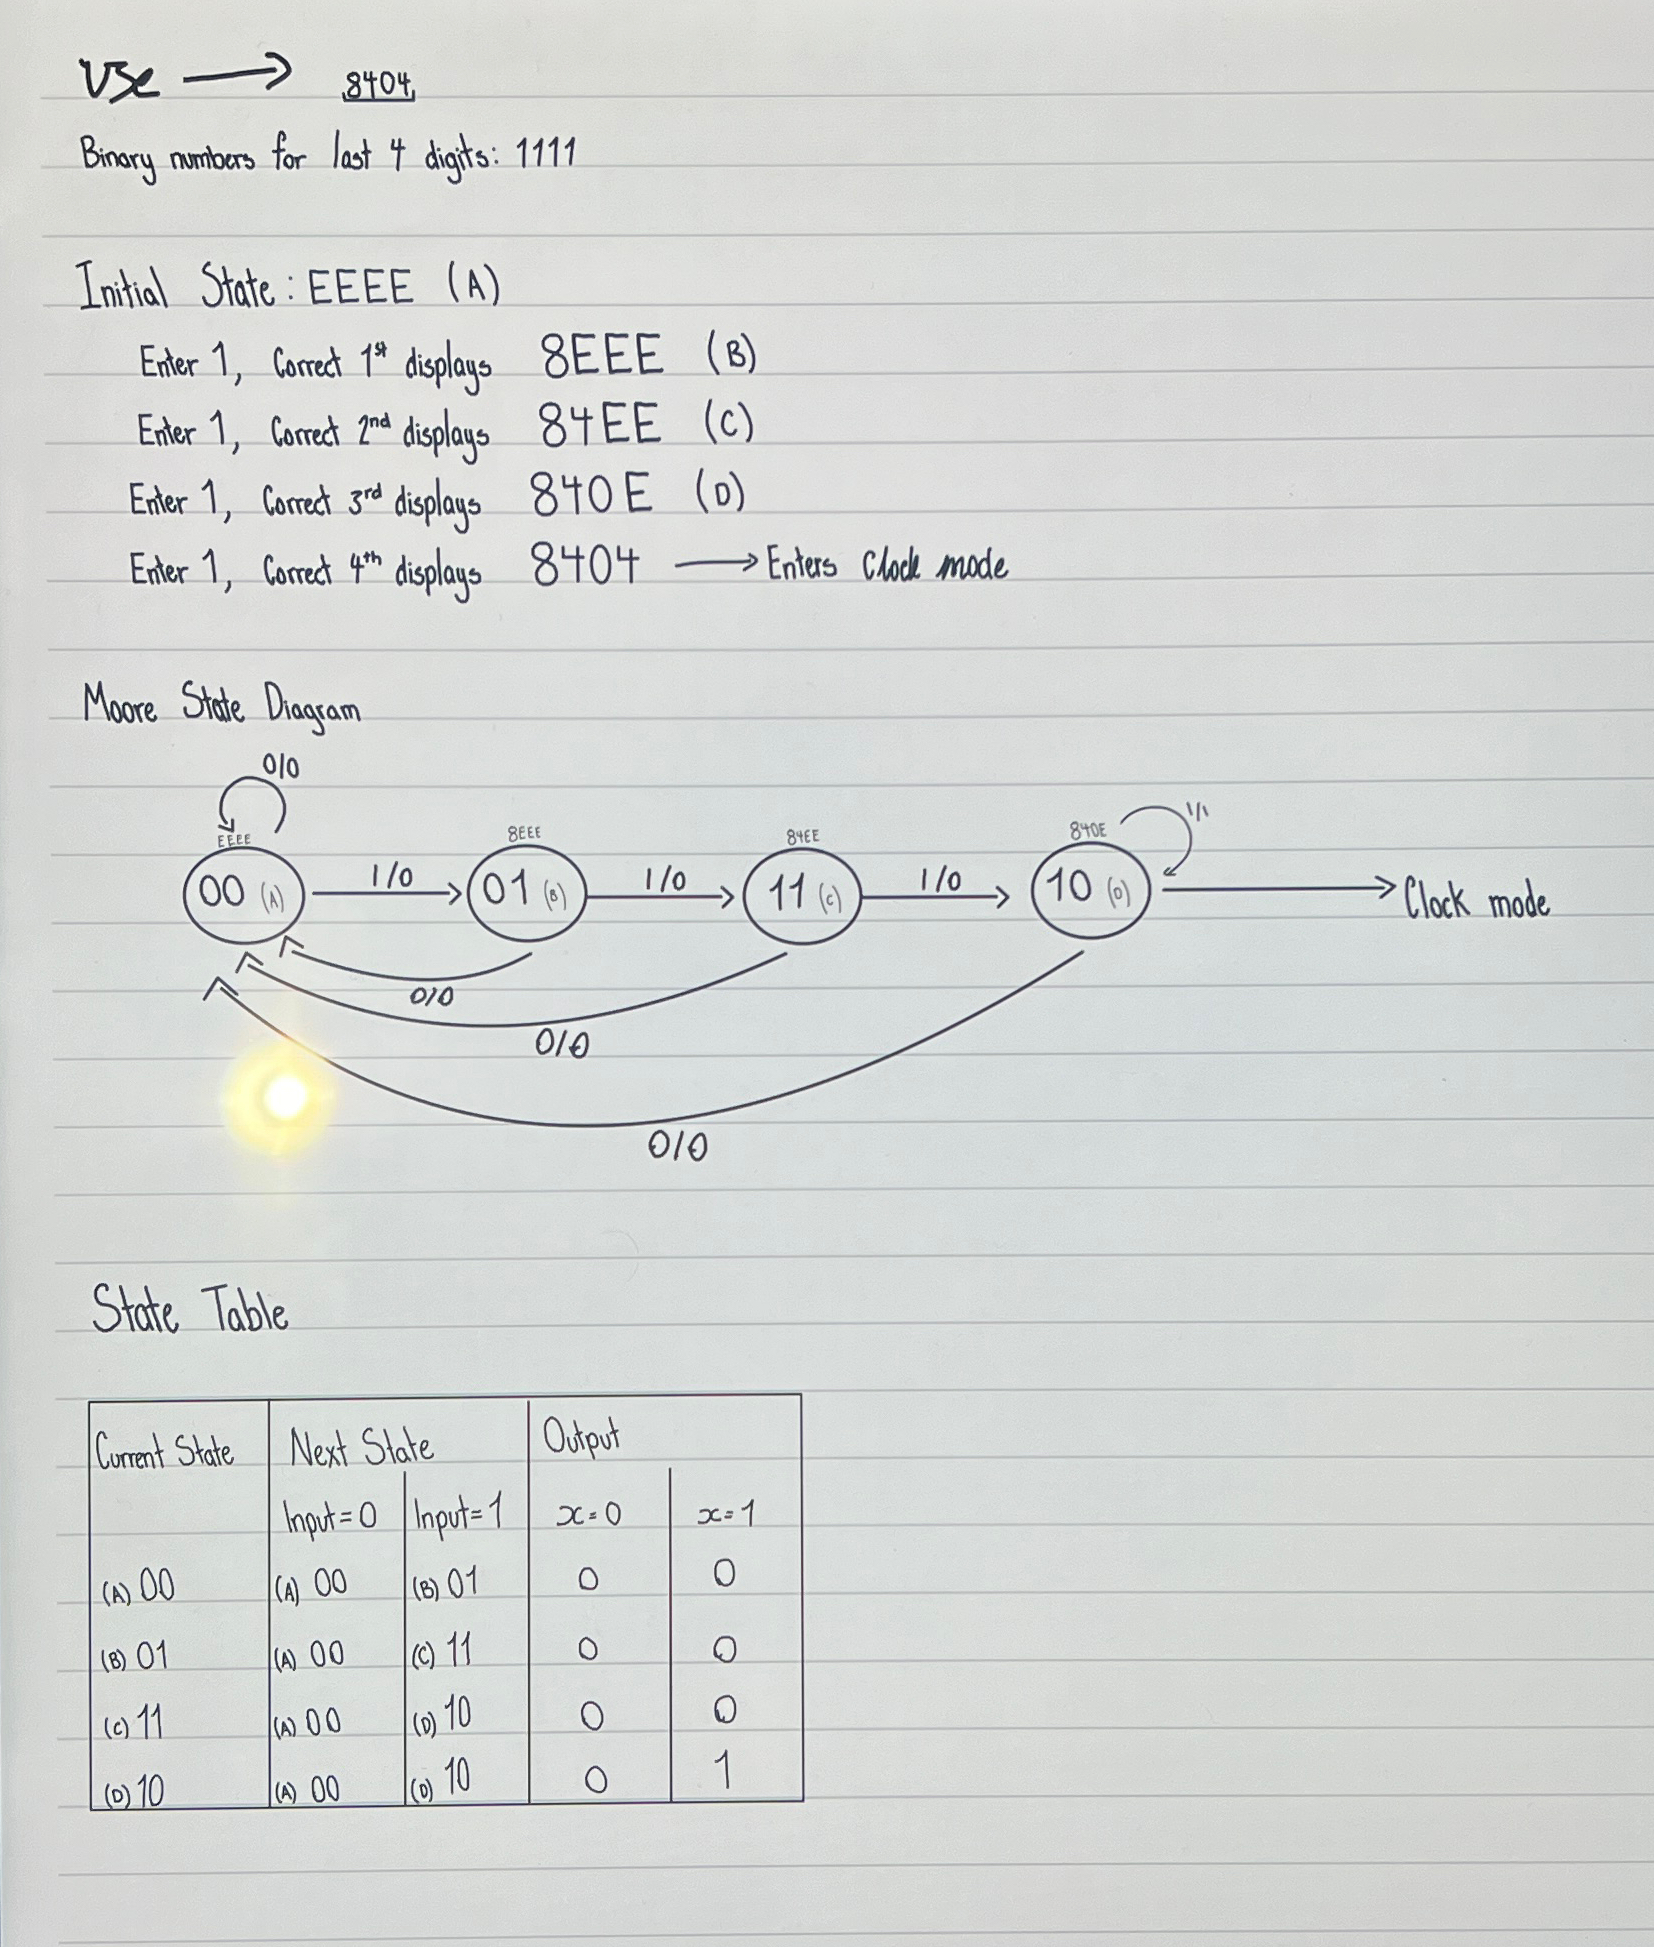 Use → 8404
Binary numbers for last 4 digits: 1111
Initial State: EEEE (A)
Enter 1, Correct 1st displays 8EEE (B)
Enter 1, Correct 2nd displays 84EE (C)
Enter 1, Correct 3rd displays 840E (D)
Enter 1, Correct 4th displays 8404 → Enters Clock mode
Moore State Diagram
0/0
1/1
EEEE 8EEE 84EE 840E
1/0 1/0 1/0
00 (A) 01 (B) 11 (C) 10 (D) Clock mode
0/0
0/0
0/0
State Table
Current State Next State Output
Input=0 Input=1 x=0 x=1
(A) 00 (A) 00 (B) 01 0 0
(B) 01 (A) 00 (C) 11 0 0
(C) 11 (A) 00 (D) 10 0 0
(D) 10 (A) 00 (D) 10 0 1